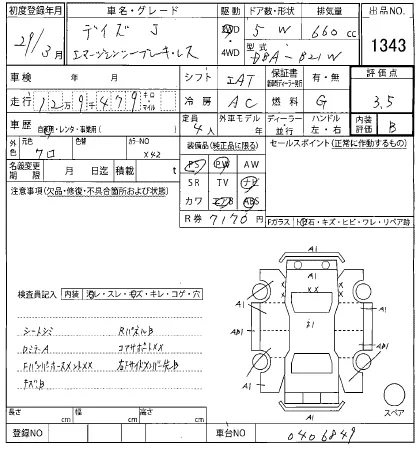 初度登録年月 車名・グレード 駆動 ドア数・形状 排気量 出品NO.
29年3月 デイズ J 2WD 5 W 660cc 1343
エマージェンシーブレーキ・レス 4WD 型式 DBA-B21W
車検 年 月 シフト IAT 保証書 有・無 評価点
走行 12万9千479 キロ マイル 冷房 AC 燃料 G 3.5
車歴 自家用・レンタ・事業用( ) 定員 4人 外車モデル 年 ディーラー 並行 ハンドル 左・右 内装評価 B
外色 元色 クロ 色替 カラーNO X42 装備品(純正品に限る) セールスポイント(正常に作動するもの)
名義変更期限 月 日迄 積載 t PS PW AW
注意事項(欠品・修復・不具合箇所および状態) SR TV ナビ
カワ エアB ABS
R券 7170円 Fガラス 飛石・キズ・ヒビ・ワレ・リペア跡
検査員記入 内装 汚レ・スレ・モズ・キレ・コゲ・穴
シートシミ RパネルB
DミラーA コアサポートXX
スペア
長さ cm 幅 cm 高さ cm
登録NO 車台NO 0406849
A1
A1
A1
A1
A1